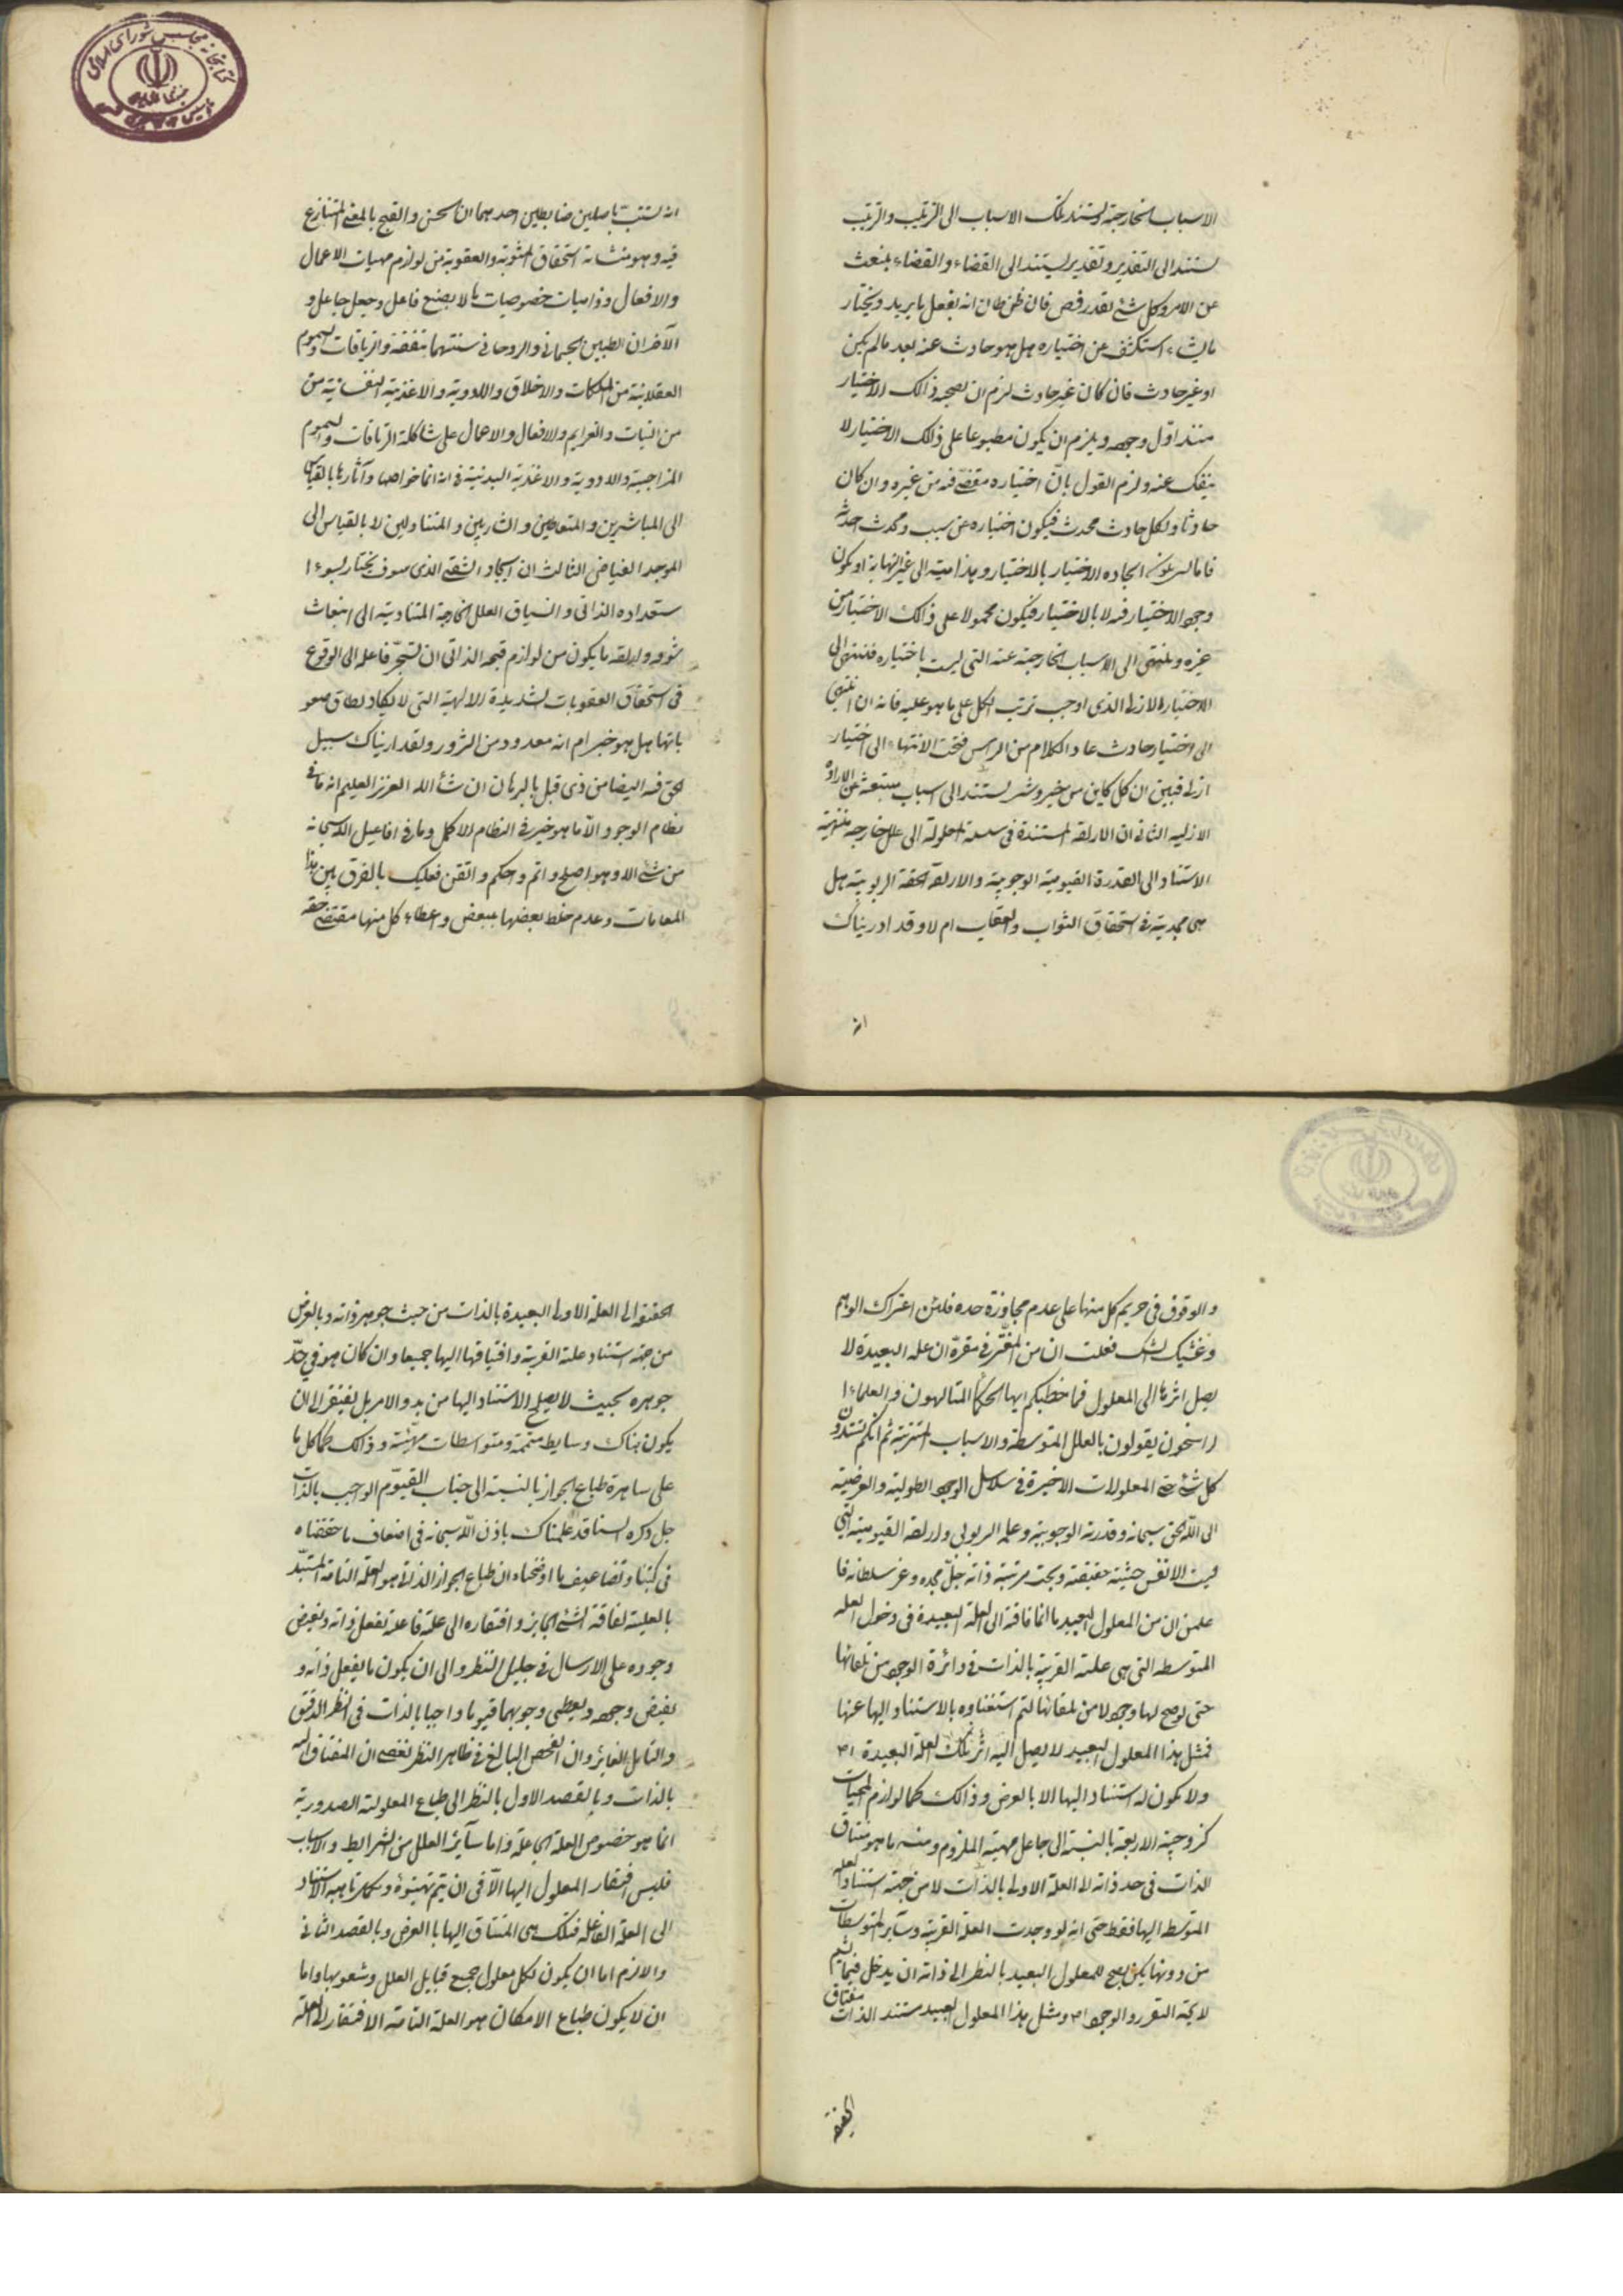 الاسباب الخارجة وتستند تلك الاسباب الى الترتيب والترتيب
يستند الى التقدير وتقدير يستند الى القضاء والقضاء ينبعث
عن الامر وكل شئ بقدر فص فان ظن ظان انه يفعل ما يريد ويختار
ما يشاء استكشف عن اختياره هل هو حادث عنه بعد ما لم يكن
او غير حادث فان كان غير حادث لزم ان يصحبه ذالك الاختيار
منذ اوّل وجوده ويلزم ان يكون مطبوعا على ذلك الاختيار لا
ينفك عنه ولزم القول بانّ اختياره مقضى فيه من غيره وان كان
حادثا ولكل حادث محدث فيكون اختياره عن سبب ومحدث احدثه
فاما ايجاده الاختيار بالاختيار وهذا ميته الى غير النهاية او يكون
وجود الاختيار فيه لا بالاختيار فيكون محمولا على ذالك الاختيار من
غيره وينتهى الى الاسباب الخارجة عنه التى ليست باختياره فينتهى الى
الاختيار الازلى الذى اوجب ترتب الكل على ما هو عليه فانه ان انتهى
الى اختيار حادث عاد الكلام من الراس فيجب الانتهاء الى اختيار
ازلى فتبين ان كل كاين من خير وشر يستند الى اسباب منبعثة عن الارادة
الازليه الثانى ان الارادة المستندة فى سلسلة المعلولة الى علل خارجه منتهية
الاستناد الى القدرة القيومية الوجوبية والارادة الحقة الربوبية هل
هى مجدية فى استحقاق الثواب والعقاب ام لا وقد ادريناك
انه
انه يستتب باصلين ضابطين احدهما ان الحسن والقبح بالمعنى المتنازع
فيه وهو منشائه استحقاق المثوبة والعقوبة من لوازم مهيات الاعمال
والافعال وذاتيات خصوصياتها لا بصنع فاعل وجعل جاعل و
الآخر ان الطبين الجسمانى والروحانى سنتهما متفقة والترياقات والسموم
العقلانية من الملكات والاخلاق والادوية والاغذية النفسانية من
من النيات والعزايم والافعال والاعمال على شاكلة الترياقات والسموم
المزاجية والادوية والاغذية البدنية فى انه انما خواصها وآثارها بالقياس
الى المباشرين والمتعاطين والشاربين والمتناولين لا بالقياس الى
الموجد الفياض الثالث ان ايجاد الشقى الذى سوف يختار بسوء ا
ستعداده الذاتى وانسياق العلل الخارجة المتادية الى انبعاث
شوقه وارادته ما يكون من لوازم قبحه الذاتى ان تستجرّ فاعله الى الوقوع
فى استحقاق العقوبات الشديدة الالهية التى لا يكاد يطاق صعو
باتها هل هو خير ام انه معدود من الشرور ولقد اريناك سبيل
الحق فيه ايضا من ذى قبل بالبرهان ان شأ الله العزيز العليم انه ما فى
نظام الوجود الّا ما هو خير فى النظام الاكمل وما فى افاعيل الله سبحانه
من شئ الا وهو اصلح واتم واحكم واتقن فعليك بالفرق بين هذا
المقامات وعدم خلط بعضها ببعض واعطاء كل منها مقتضى حقه
والوقوف فى حريم كل منها على عدم مجاوزة حده فلئن اعتراك الوهم
وغشيك الشك فقلت ان من المقرّر فى مقرّه ان علة البعيدة لا
يصل اثرها الى المعلول فما خطبكم ايها الحكمأ المتالهون والعلماء ا
لراسخون يقولون بالعلل المتوسطة والاسباب المترتبة ثم انكم تسندون
كل شئ حتى المعلولات الاخيرة فى سلاسل الوجود الطولية والعرضية
الى اللّه الحق سبحانه وقدرته الوجوبية وعلمه الربوبى وارادته القيومية التى
ليست الا نفس حيثية حقيقته وبحت مرتبة ذاته جلّ مجده وعز سلطانه فا
علمن ان من المعلول البعيد ما انما فاقته الى العلة البعيدة فى دخول العله
المتوسطه التى هى علته القريبة بالذات فى دائرة الوجود من تلقائها
حتى لو صح لها وجود لا من تلقائها لتم استغناوه بالاستناد اليها عنها
فمثل هذا المعلول البعيد لا يصل اليه اثر تلك العلة البعيدة
ولا يكون له استناد اليها الا بالعرض وذالك كما لوازم المهيات
كزوجية الاربعة بالنسبة الى جاعل مهية الملزوم ومنه ما هو مفتاق
الذات فى حد ذاته الى العلة الاولى بالذات لا من جهة استناد العله
المتوسطه اليها فقط حتى انه لو وجدت العلة القريبة وسآير المتوسطات
من دونها لم يكن يصح للمعلول البعيد بالنظر الى ذاته ان يدخل فيما يتم
لايحة التقرر والوجود ومثل هذا المعلول البعيد مستند الذات مفتاق
الحقيقه
الحقيقة الى العلة الاولى البعيدة بالذات من حيث جوهر ذاته وبالعرض
من جهة استناد علته القريبة وافتياقها اليها جميعا وان كان هو فى حدّ
جوهره بحيث لا يصلح للاستناد اليها من بدو الامر بل يفتقر الى ان
يكون هناك وسايط متممة ومتوسطات مهيّئة وذالك كما كل ما
على ساهرة طباع الجواز بالنسبة الى جناب القيّوم الواجب بالذات
جل ذكره السنا قد علمناك باذن اللّه سبحانه فى اضعاف ما حققناه
فى كتبنا وتضاعيف ما اوضحناه ان طباع الجواز الذاتى هو العلة التامة المستبدّ
بالعلية لفاقة الشئ الجايز وافتقاره الى علة فاعلة تفعل ذاته وتفيض
وجوده على الارسال فى جليل النظر والى ان يكون ما يفعل ذاته و
يفيض وجوده ويعطى وجوبهما قيوما واجبا بالذات فى النظر الدقيق
والتامل الغائر وان الفحص البالغ فى ظاهر النظر تفصى ان المفتاق اليه
بالذات وبالقصد الاول بالنظر الى طباع المعلولية الصدورية
انما هو خصوص العلة الجاعلة واما سآئر العلل من الشرايط والاسباب
فليس افتقار المعلول اليها الّا فى ان يتم تهيّؤه ويكمل تاهبه للاستناد
الى العلة الفاعلة فتلك هى المفتاق اليها بالعرض وبالقصد الثانى
والا لزم اما ان يكون لكل معلول جميع قبايل العلل وشعوبها واما
ان لا يكون طباع الامكان هو العلة التامة الافتقار الى العلة